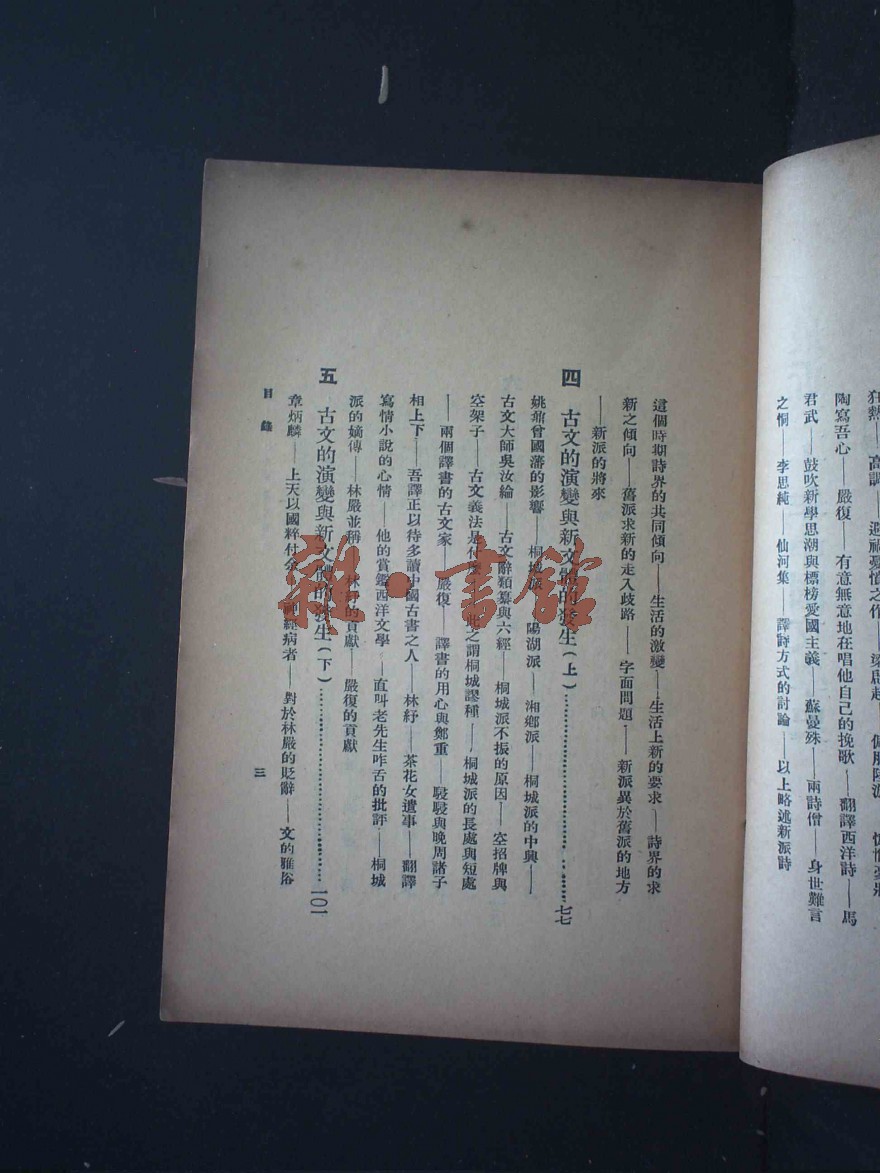 陶寫吾心——嚴復——有意無意地在唱他自己的挽歌——翻譯西洋詩——馬
君武——鼓吹新學思潮與標榜愛國主義——蘇曼殊——兩詩僧——身世難言
之恫——李思純——仙河集——譯詩方式的討論——以上略述新派詩
這個時期詩界的共同傾向——生活的激變——生活上新的要求——詩界的求
新之傾向——舊派求新的走入歧路——字面問題——新派異於舊派的地方
——新派的將來
四 古文的演變與新文體的發生(上)……七七
姚鼐曾國藩的影響——桐城派——陽湖派——湘鄉派——桐城派的中興——
古文大師吳汝綸——古文辭類纂與六經——桐城派不振的原因——空招牌與
空架子——古文義法是什麼——此之謂桐城謬種——桐城派的長處與短處
——兩個譯書的古文家——嚴復——譯書的用心與鄭重——駸駸與晚周諸子
相上下——吾譯正以待多讀中國古書之人——林紓——茶花女遺事——翻譯
寫情小說的心情——他的賞鑑西洋文學——直叫老先生咋舌的批評——桐城
派的嫡傳——林嚴並稱——林紓的貢獻——嚴復的貢獻
五 古文的演變與新文體的發生(下)……一〇一
章炳麟——上天以國粹付余——神經病者——對於林嚴的貶辭——文的雅俗
目錄
三
雜·書館